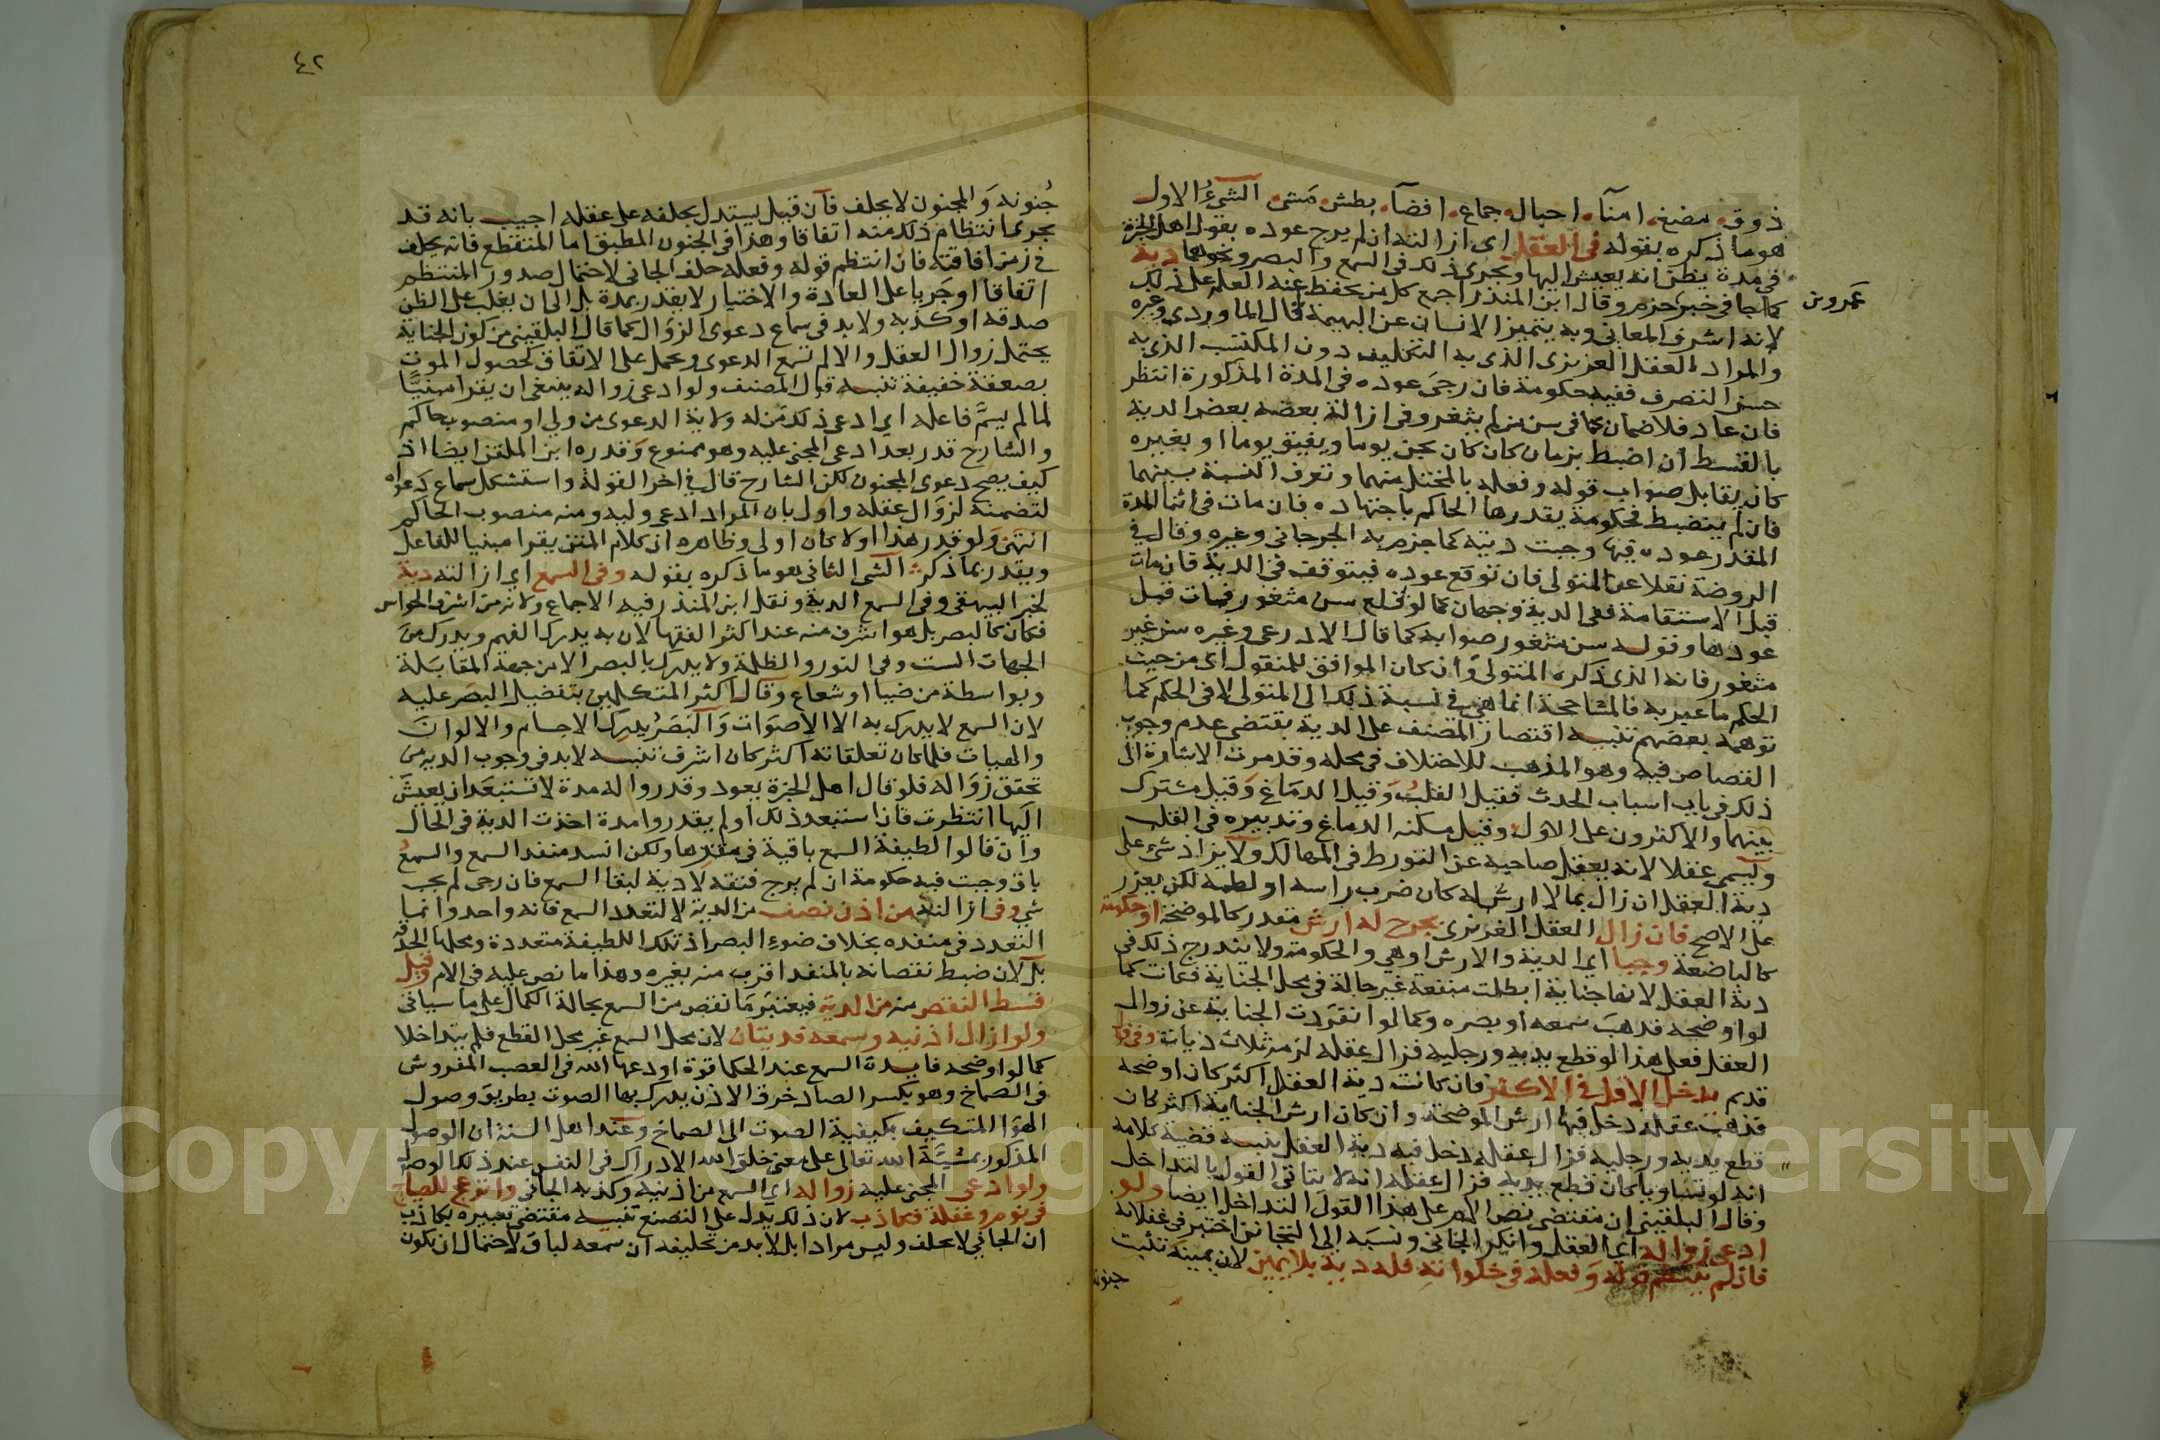 ذوق مضغ امناء احبال جماع افضاء بطش مشى الشئ الاول
هو ما ذكره بقوله فى العقل اى ازالته ان لم يرج عوده بقول اهل الخبرة
فى مدة يظن انه يعيش اليها ويجرى ذلك فى السمع والبصر ونحوهما دية
كما جا فى خبر حزم وقال ابن المنذر اجمع كل من يحفظ عنه العلم على ذلك
عمرو بن
لانه اشرف المعانى وبه يتميز الانسان عن البهيمة قال الماوردى وغيره
والمراد العقل الغريزى الذى به التكليف دون المكتسب الذى به
حسن التصرف ففيه حكومة فان رجى عوده فى المدة المذكورة انتظر
فان عاد فلا ضمان كما فى سن من لم يثغر وفى ازالة بعضه بعض الدية
بالقسط ان اضبط بزمان كان كان يجن يوما ويفيق يوما او بغيره
كان يقابل صواب قوله وفعله بالمختل منهما وتعرف النسبة بينهما
فان لم ينضبط فحكومة يقدرها الحاكم باجتهاده فان مات فى اثنا المدة
المقدر عوده فيها وجبت ديته كما جزم به الجرجانى وغيره وقال فى
الروضة نقلا عن المتولى فان توقع عوده فيتوقف فى الدية فان مات
قبل الاستقامة ففى الدية وجهان كما لو قلع سن مثغور فمات قبل
عودها وقوله سن مثغور صوابه كما قال الاذرعى وغيره سن غير
مثغور فانه الذى ذكره المتولى وان كان الموافق للمنقول اى من حيث
الحكم ما عبر به فالمشاححة انما هى فى نسبة ذلك الى المتولى لا فى الحكم كما
توهمه بعضهم تنبيه اقتصار المصنف على الدية يقتضى عدم وجوب
القصاص فيه وهو المذهب للاختلاف فى محله وقد مرت الاشارة الى
ذلك فى باب اسباب الحدث فقيل القلب وقيل الدماغ وقيل مشترك
بينهما والاكثرون على الاول وقيل مسكنه الدماغ وتدبيره فى القلب
ويسمى عقلا لانه يعقل صاحبه عن التورط فى المهالك ولا يزاد شئ على
دية العقل ان زال بما لا ارش له كان ضرب راسه او لطمه لكن يعزر
على الاصح فان زال العقل الغريزى بجرح له ارش مقدر كالموضحة او حكومة
كالباضعة وجبا اى الدية والارش او هى والحكومة ولا يندرج ذلك فى
دية العقل لانها جناية ابطلت منفعة غير حالة فى محل الجناية فكانت كما
لو اوضحه فذهب سمعه او بصره وكما لو انفردت الجناية عن زوال
العقل فعلى هذا لو قطع يديه ورجليه فزال عقله لزمه ثلاث ديات وفى قول
قديم يدخل الاقل فى الاكثر فان كانت دية العقل اكثر كان اوضحه
فذهب عقله دخل فيها ارش الموضحة وان كان ارش الجناية اكثر كان
قطع يديه ورجليه فزال عقله دخل فيه دية العقل تنبيه قضية كلامه
انه لو تساويا كان قطع يديه فزال عقله انه لا يتاتى القول بالتداخل
وقال البلقينى ان مقتضى نص الام على هذا القول التداخل ايضا ولو
ادعى زواله اى العقل وانكر الجانى ونسبه الى التجانن اختبر فى غفلاته
فان لم ينتظم قوله وفعله فى خلواته فله دية بلا يمين لان يمينه تثبت
جنونه
٤٢
جنونه والمجنون لا يحلف فان قيل يستدل بحلفه على عقله اجيب بانه قد
يجرى انتظام ذلك منه اتفاقا وهذا فى الجنون المطبق اما المتقطع فانه يحلف
فى زمن افاقته فان انتظم قوله وفعله حلف الجانى لاحتمال صدور المنتظم
اتفاقا او جريا على العادة والاختبار لا يقدر بمدة بل الى ان يغلب على الظن
صدقه او كذبه ولا بد فى سماع دعوى الزوال كما قال البلقينى من كون الجناية
يحتمل زوال العقل والا لم تسمع الدعوى ويحمل على الاتفاق كحصول الموت
بصعقة خفيفة تنبيه قول المصنف ولو ادعى زواله ينبغى ان يقرا مبنيًّا
لما لم يسمَّ فاعله اى ادعى ذلك من له ولاية الدعوى من ولى او منصوب حاكم
والشارح قدر بعد ادعى المجنى عليه وهو ممنوع وقدره ابن الملقن ايضا اذ
كيف يصح دعوى المجنون لكن الشارح قال فى اخر القولة واستشكل سماع دعواه
لتضمنه لزوال عقله واول بان المراد ادعى وليه ومنه منصوب الحاكم
انتهى ولو قدر هذا اولا كان اولى وظاهره ان كلام المتن يقرا مبنيا للفاعل
ويقدر بما ذكر الشئ الثانى هو ما ذكره بقوله وفى السمع اى ازالته دية
لخبر البيهقى وفى السمع الدية ونقل ابن المنذر فيه الاجماع ولانه من اشرف الحواس
فكان كالبصر بل هو اشرف منه عند اكثر الفقها لان به يدرك الفهم ويدرك من
الجهات الست وفى النور والظلمة ولا يدرك بالبصر الا من جهة المقابلة
وبواسطة من ضيا او شعاع وقال اكثر المتكلمين بتفضيل البصر عليه
لان السمع لا يدرك به الا الاصوات والبصر يدرك الاجسام والالوان
والهيات فلما كان تعلقاته اكثر كان اشرف تنبيه لا بد فى وجوب الدية من
تحقق زواله فلو قال اهل الخبرة يعود وقدروا له مدة لا تستبعد ان يعيش
اليها انتظرت فان استبعد ذلك او لم يقدروا مدة اخذت الدية فى الحال
وان قالوا لطيفة السمع باقية فى مقرها ولكن انسد منفذ السمع والسمع
باق وجبت فيه حكومة ان لم يرج فتقه لا دية لبقا السمع فان رجى لم يجب
شى وفى ازالته من اذن نصف من الدية لا لتعدد السمع فانه واحد وانما
التعدد فى منفذه بخلاف ضوء البصر اذ تلك اللطيفة متعددة ومحلها الحدقة
بل لان ضبط نقصانه بالمنفذ اقرب منه بغيره وهذا ما نص عليه فى الام وقيل
قسط النقص منه من الدية فيعتبر ما نقص من السمع بحالة الكمال على ما سياتى
ولو ازال اذنيه وسمعه فديتان لان محل السمع غير محل القطع فلم يتداخلا
كما لو اوضحه فايدة السمع عند الحكما قوة اودعها الله فى العصب المفروش
فى الصماخ وهو بكسر الصاد خرق الاذن يدرك بها الصوت بطريق وصول
الهوا المتكيف بكيفية الصوت الى الصماخ وعند اهل السنة ان الوصول
المذكور بمشيَّة الله تعالى على معنى خلق الله الادراك فى النفس عند ذلك الوصول
ولو ادعى المجنى عليه زواله اى السمع من اذنيه وكذبه الجانى وانزعج للصياح
فى نوم وغفلة فكاذب لان ذلك يدل على التصنع تنبيه مقتضى تعبيره بكاذب
ان الجانى لا يحلف وليس مرادا بل لا بد من تحليفه ان سمعه لباق لاحتمال ان يكون
Copy
g
ersity